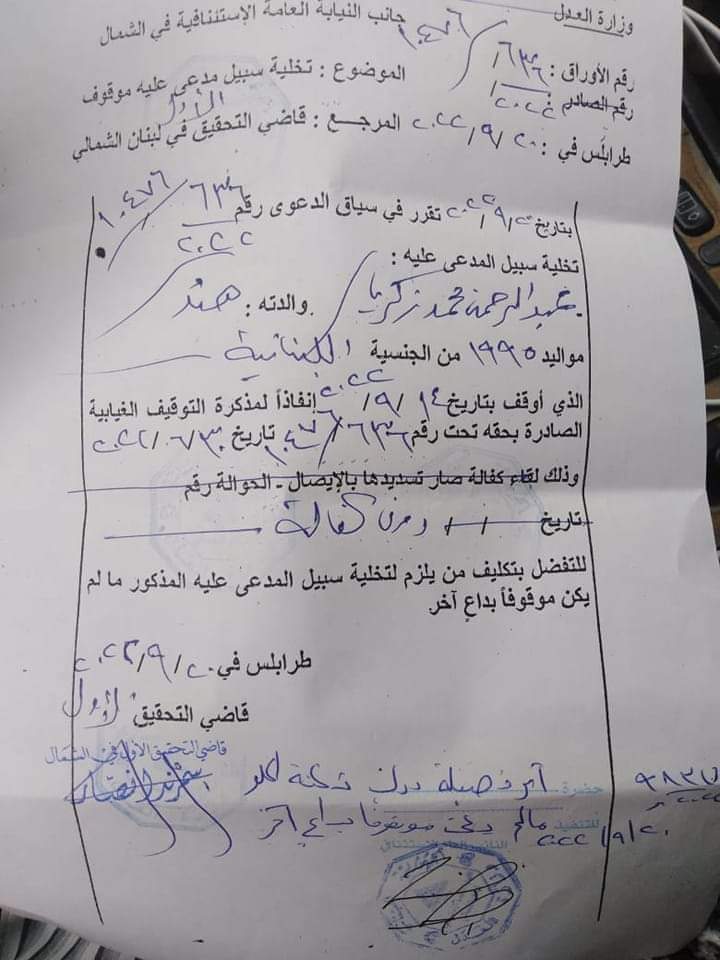 وزارة العدل
جانب النيابة العامة الإستئنافية في الشمال
رقم الأوراق : ٦٣٦ / ١٠٤٧٦
الموضوع : تخلية سبيل مدعى عليه موقوف
رقم الصادر ٢٠٢٢
طرابلس في : ٢٠ / ٩ / ٢٠٢٢ المرجع : قاضي التحقيق الأول في لبنان الشمالي
بتاريخ ٢٠ / ٩ / ٢٠٢٢ تقرر في سياق الدعوى رقم ٦٣٦ / ١٠٤٧٦
٢٠٢٢
تخلية سبيل المدعى عليه :
- عبد الرحمن محمد زكريا والدته : هند
مواليد ١٩٩٥ من الجنسية اللبنانية
الذي أوقف بتاريخ ١٤ / ٩ / ٢٠٢٢ إنفاذاً لمذكرة التوقيف الغيابية
الصادرة بحقه تحت رقم ٦٣٦ / ١٠٤٧٦ تاريخ ٣٠ / ٦ / ٢٠٢٢
وذلك لقاء كفالة صار تسديدها بالإيصال - الحوالة رقم
تاريخ / / دون كفالة
للتفضل بتكليف من يلزم لتخلية سبيل المدعى عليه المذكور ما لم
يكن موقوفاً بداعٍ آخر.
طرابلس في ٢٠ / ٩ / ٢٠٢٢
قاضي التحقيق الأول
قاضي التحقيق الأول في الشمال
سمرندا نصار
حضرة آمر فصيلة درك
للتنفيذ مالم يكن موقوفا بداع آخر
٢٠ / ٩ / ٢٠٢٢
النائب العام الاستئنافي